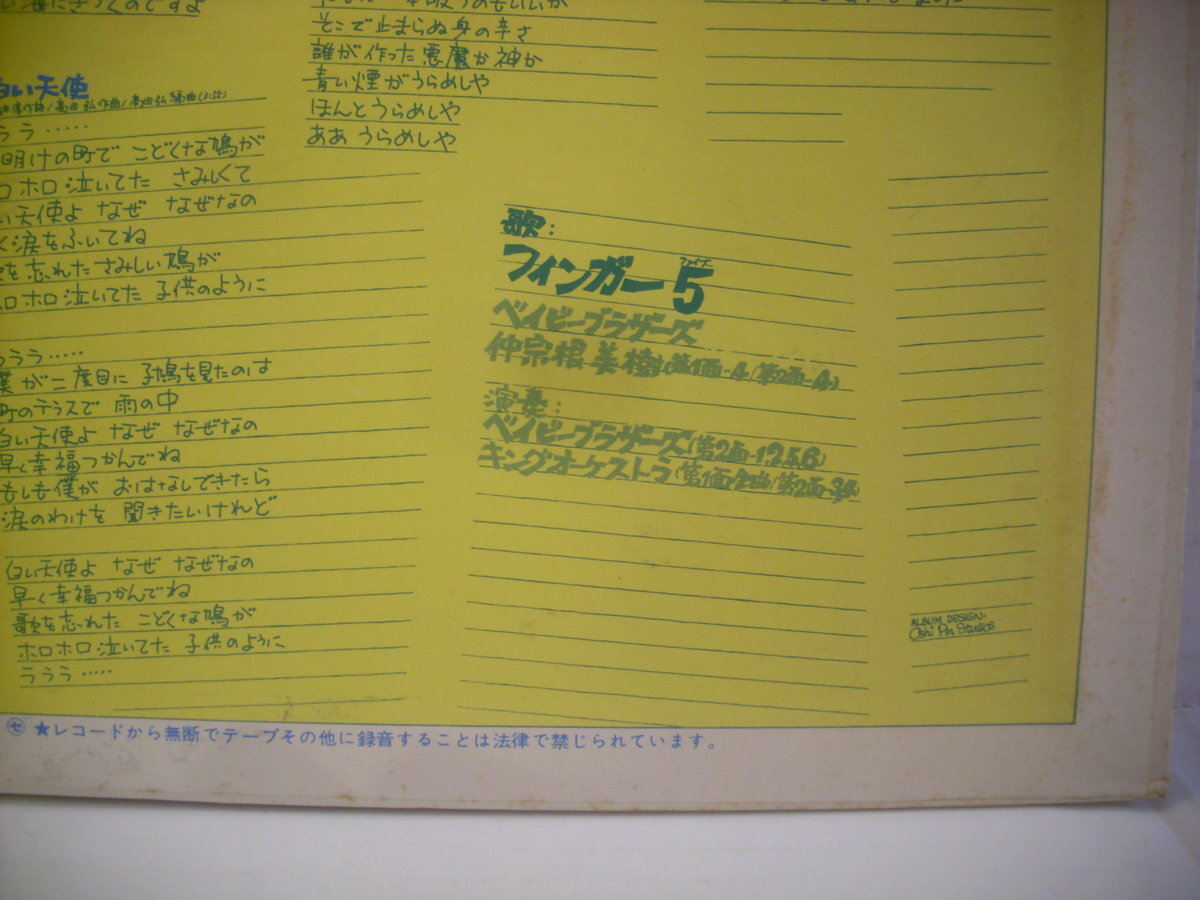 白い天使
高田弘作曲/高田弘編曲(3:55)
うう……
明けの町で こどくな鳩が
ホロ泣いてた さみしくて
い天使よ なぜ なぜなの
く涙をふいてね
を忘れた さみしい鳩が
ロホロ泣いてた 子供のように
ううう……
僕が二度目に 子鳩を見たのは
町のテラスで 雨の中
白い天使よ なぜ なぜなの
早く幸福つかんでね
もしも僕が おはなしできたら
涙のわけを 聞きたいけれど
白い天使よ なぜ なぜなの
早く幸福つかんでね
歌を忘れた こどくな鳩が
ホロホロ泣いてた 子供のように
ううう……
そこで止まらぬ身の辛さ
誰が作った悪魔か神か
青い煙がうらめしや
ほんとうらめしや
ああ うらめしや
歌:
フィンガー5
ファイブ
ベイビーブラザーズ
仲宗根美樹(第1面-4/第2面-4)
演奏:
ベイビーブラザーズ(第2面-1.2.5.6)
キングオーケストラ(第1面全曲/第2面-3.4)
ALBUM DESIGN:
Oshi Pin Studios
㋝ ★レコードから無断でテープその他に録音することは法律で禁じられています。